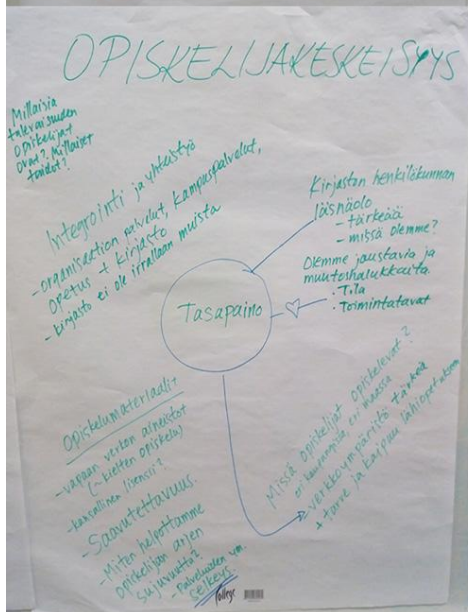 OPISKELIJAKESKEISYYS
Millaisia
tulevaisuuden
opiskelijat
ovat? Millaiset
taidot?
Integrointi ja yhteistyö
- organisaation palvelut, kampuspalvelut,
opetus + kirjasto
- kirjasto ei ole irrallaan muista
Kirjaston henkilökunnan
läsnäolo
- tärkeää
- missä olemme?
Olemme joustavia ja
muutoshalukkaita
· Tila
· Toimintatavat
Tasapaino
Opiskelumateriaalit
- vapaan verkon aineistot
(~ kielten opiskelu)
- kansallinen lisenssi?
- Saavutettavuus
- Miten helpottamme
opiskelijan arjen
sujuvuutta?
- Palveluiden ym.
selkeys
Missä opiskelijat opiskelevat?
eri kaupungissa, eri maassa
- verkkoympäristö tärkeä
+ tarve ja kaipuu lähiopetukseen